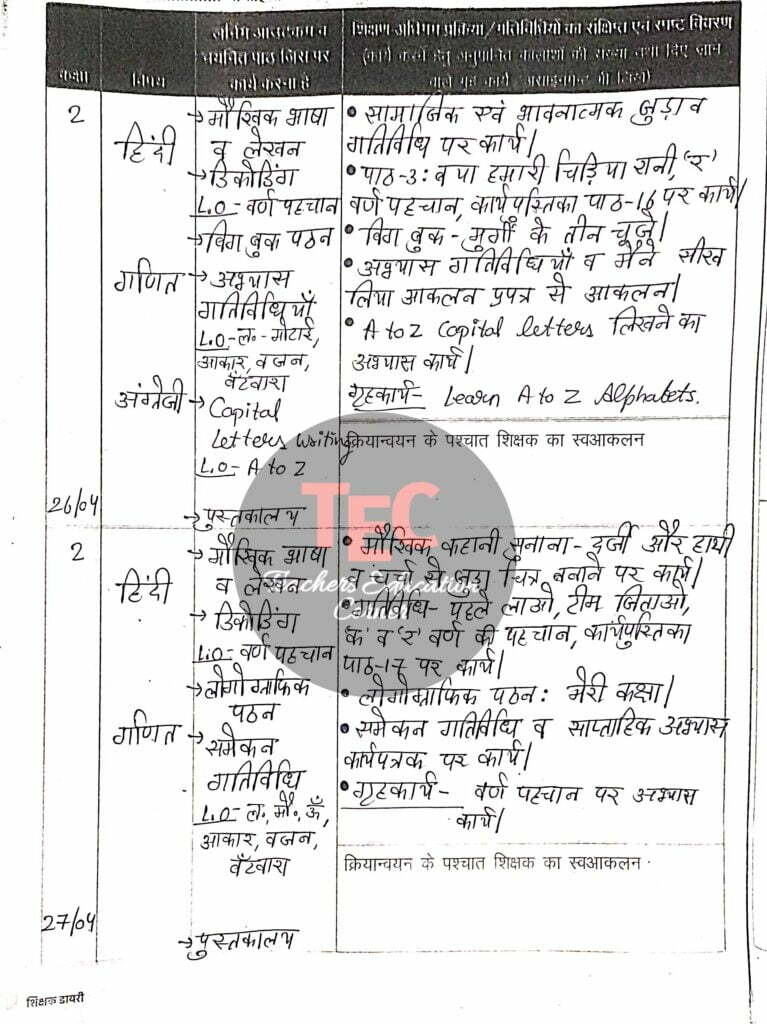 कक्षा
विषय
चयनित पाठ जिस पर
कार्य करना है
शिक्षण-अधिगम प्रक्रिया/गतिविधियों का संक्षिप्त एवं स्पष्ट विवरण
2
हिंदी
→ मौखिक भाषा
व लेखन
→ डिकोडिंग
L.O - वर्ण पहचान
→ बिग बुक पठन
गणित
→ अभ्यास
गतिविधियाँ
L.O - ल.- मोटाई,
आकार, वजन,
बँटवारा
अंग्रेजी
→ Capital
Letters writing
L.O - A to Z
26/04
→ पुस्तकालय
• सामाजिक एवं भावनात्मक जुड़ाव
गतिविधि पर कार्य।
• पाठ-3: बया हमारी चिड़िया रानी, 'र'
वर्ण पहचान, कार्यपुस्तिका पाठ-16 पर कार्य।
• बिग बुक - मुर्गी के तीन चूजे।
• अभ्यास गतिविधियाँ व मैंने सीख
लिया आकलन प्रपत्र से आकलन।
• A to Z Capital letters लिखने का
अभ्यास कार्य।
गृहकार्य- Learn A to Z Alphabets.
क्रियान्वयन के पश्चात शिक्षक का स्वआकलन
TEC
Teachers Education
Corner
2
हिंदी
→ मौखिक भाषा
व लेखन
→ डिकोडिंग
L.O - वर्ण पहचान
→ लोगोग्राफिक
पठन
गणित
→ समेकन
गतिविधि
L.O - ल., मो., ऊँ,
आकार, वजन,
बँटवारा
27/04
→ पुस्तकालय
• मौखिक कहानी सुनाना - दर्जी और हाथी
व चर्चा से जुड़ा चित्र बनाने पर कार्य।
• गतिविधि- पहले लाओ, टीम जिताओ,
'क' व 'र' वर्ण की पहचान, कार्यपुस्तिका
पाठ-17 पर कार्य।
• लोगोग्राफिक पठन: मेरी कक्षा।
• समेकन गतिविधि व साप्ताहिक अभ्यास
कार्यपत्रक पर कार्य।
• गृहकार्य- वर्ण पहचान पर अभ्यास
कार्य।
क्रियान्वयन के पश्चात शिक्षक का स्वआकलन
शिक्षक डायरी